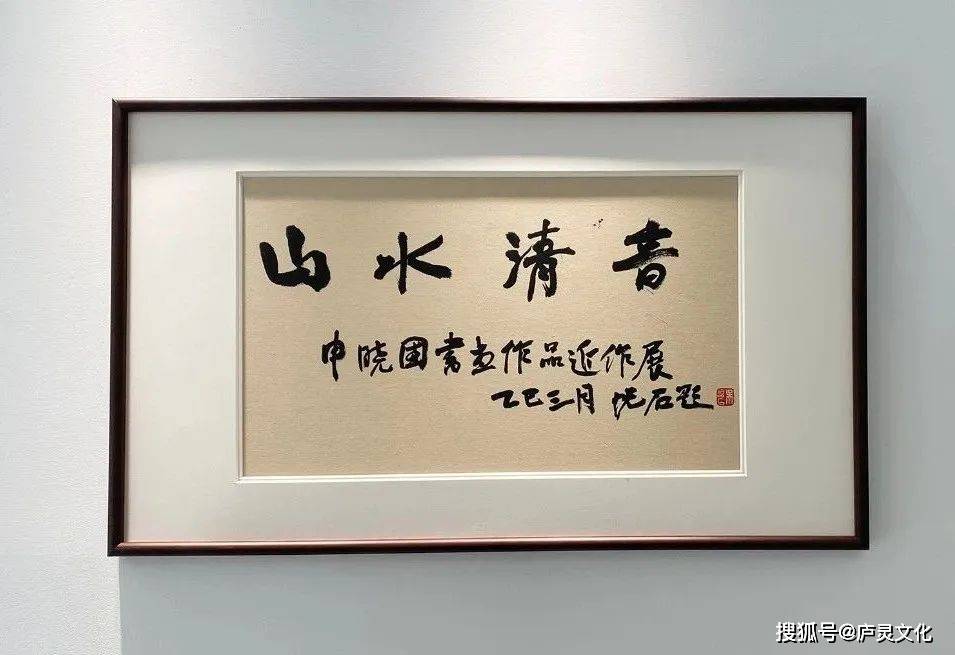 山水清音
申晓国书画作品近作展
乙巳三月 忱石题
搜狐号@庐灵文化